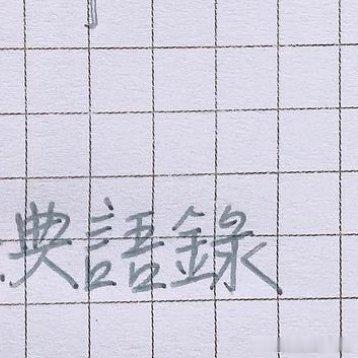 典語錄